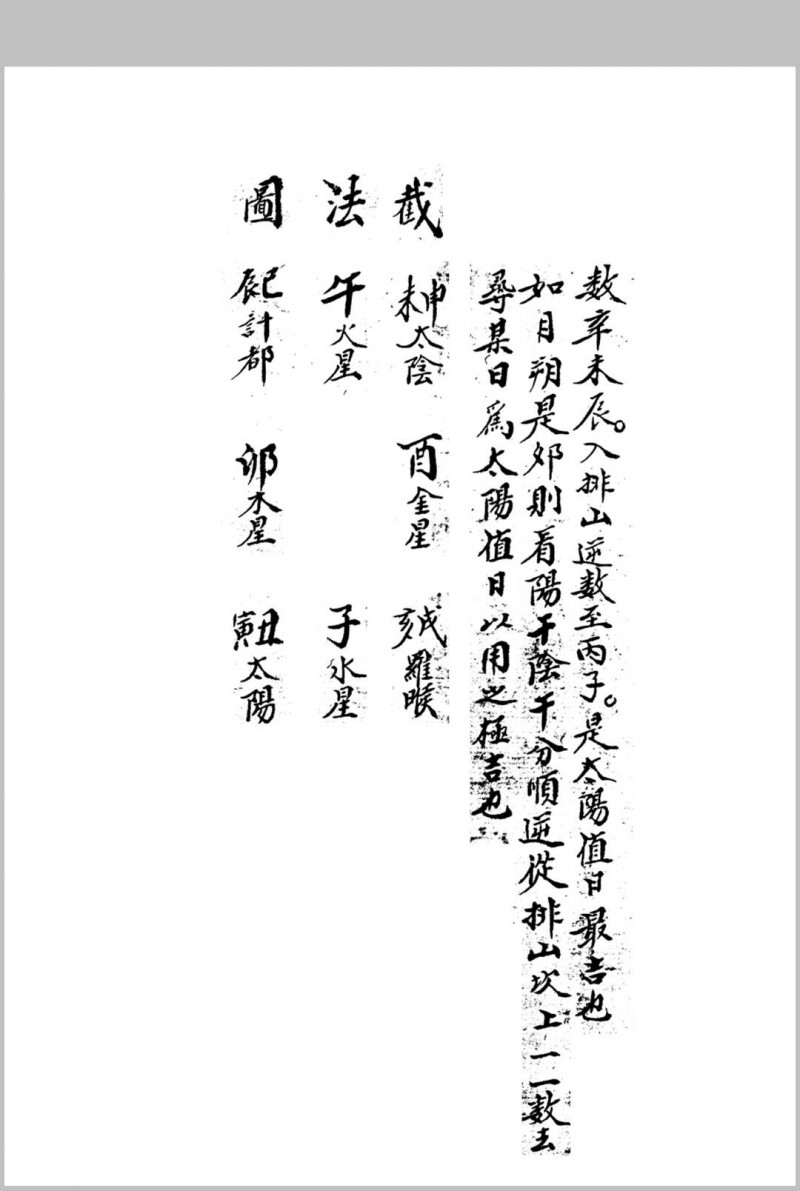 数辛未辰。入排山逆数至丙子。是太陽值日最吉也
如月朔是卯則看陽干陰干分順逆從排山坎上一一数去
尋某日爲太陽值日以用之極吉也
截 未申太陰 酉金星 戌亥羅睺
法 午火星 子水星
圖 辰巳計都 卯木星 寅丑太陽